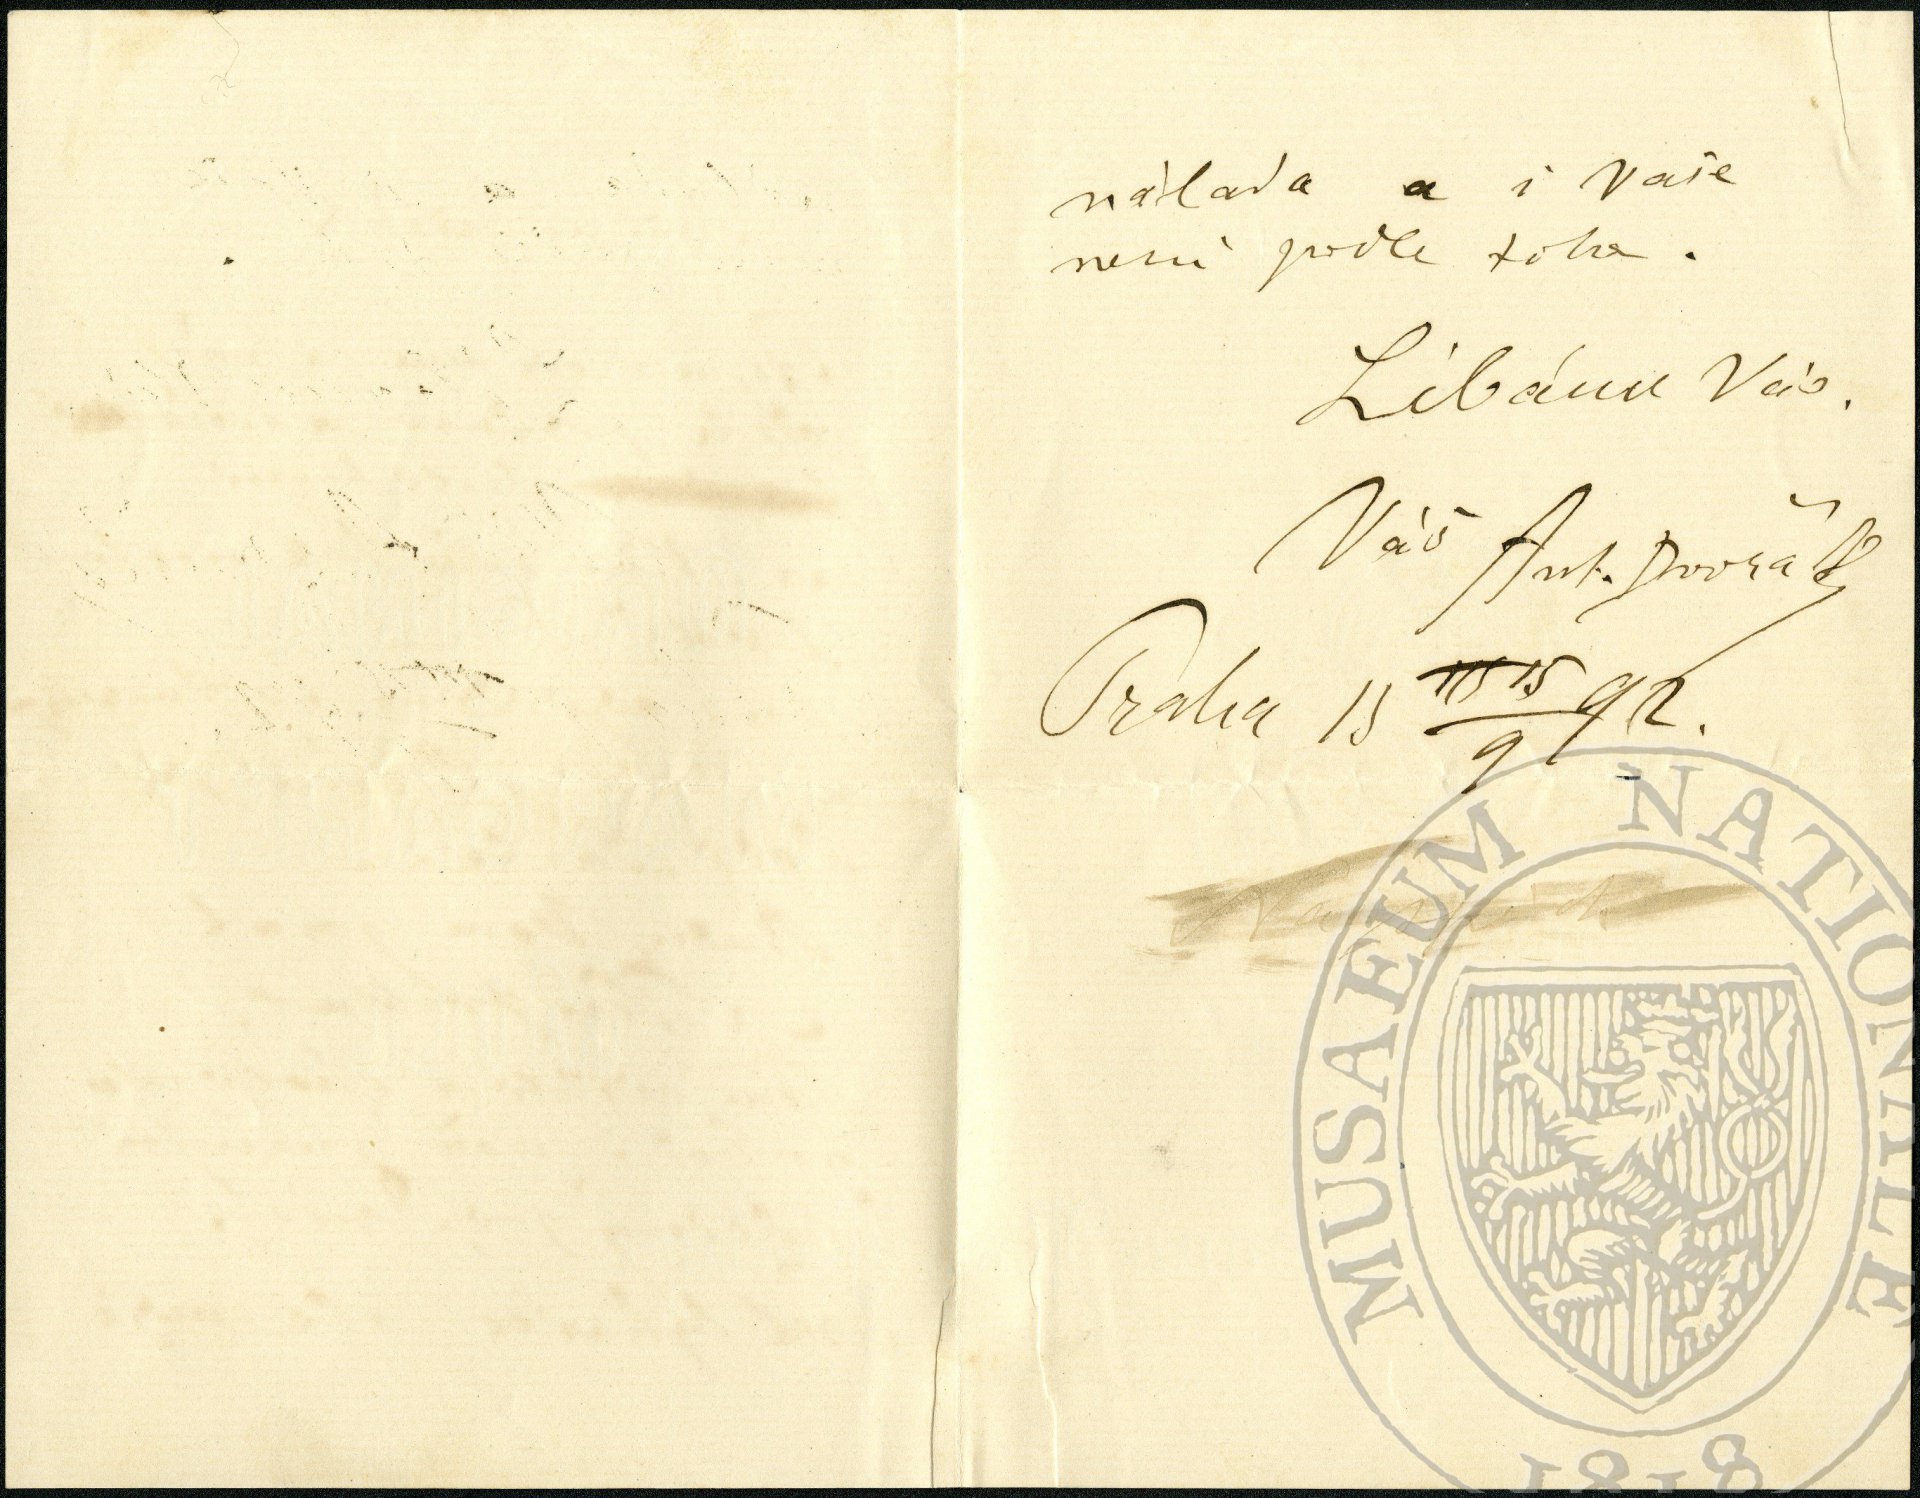 nálada a i Vaše
není podle toho.
Líbám Vás.
Váš Ant. Dvořák
Praha 15 15/9 92.
MUSAEUM NATIONALE
1818